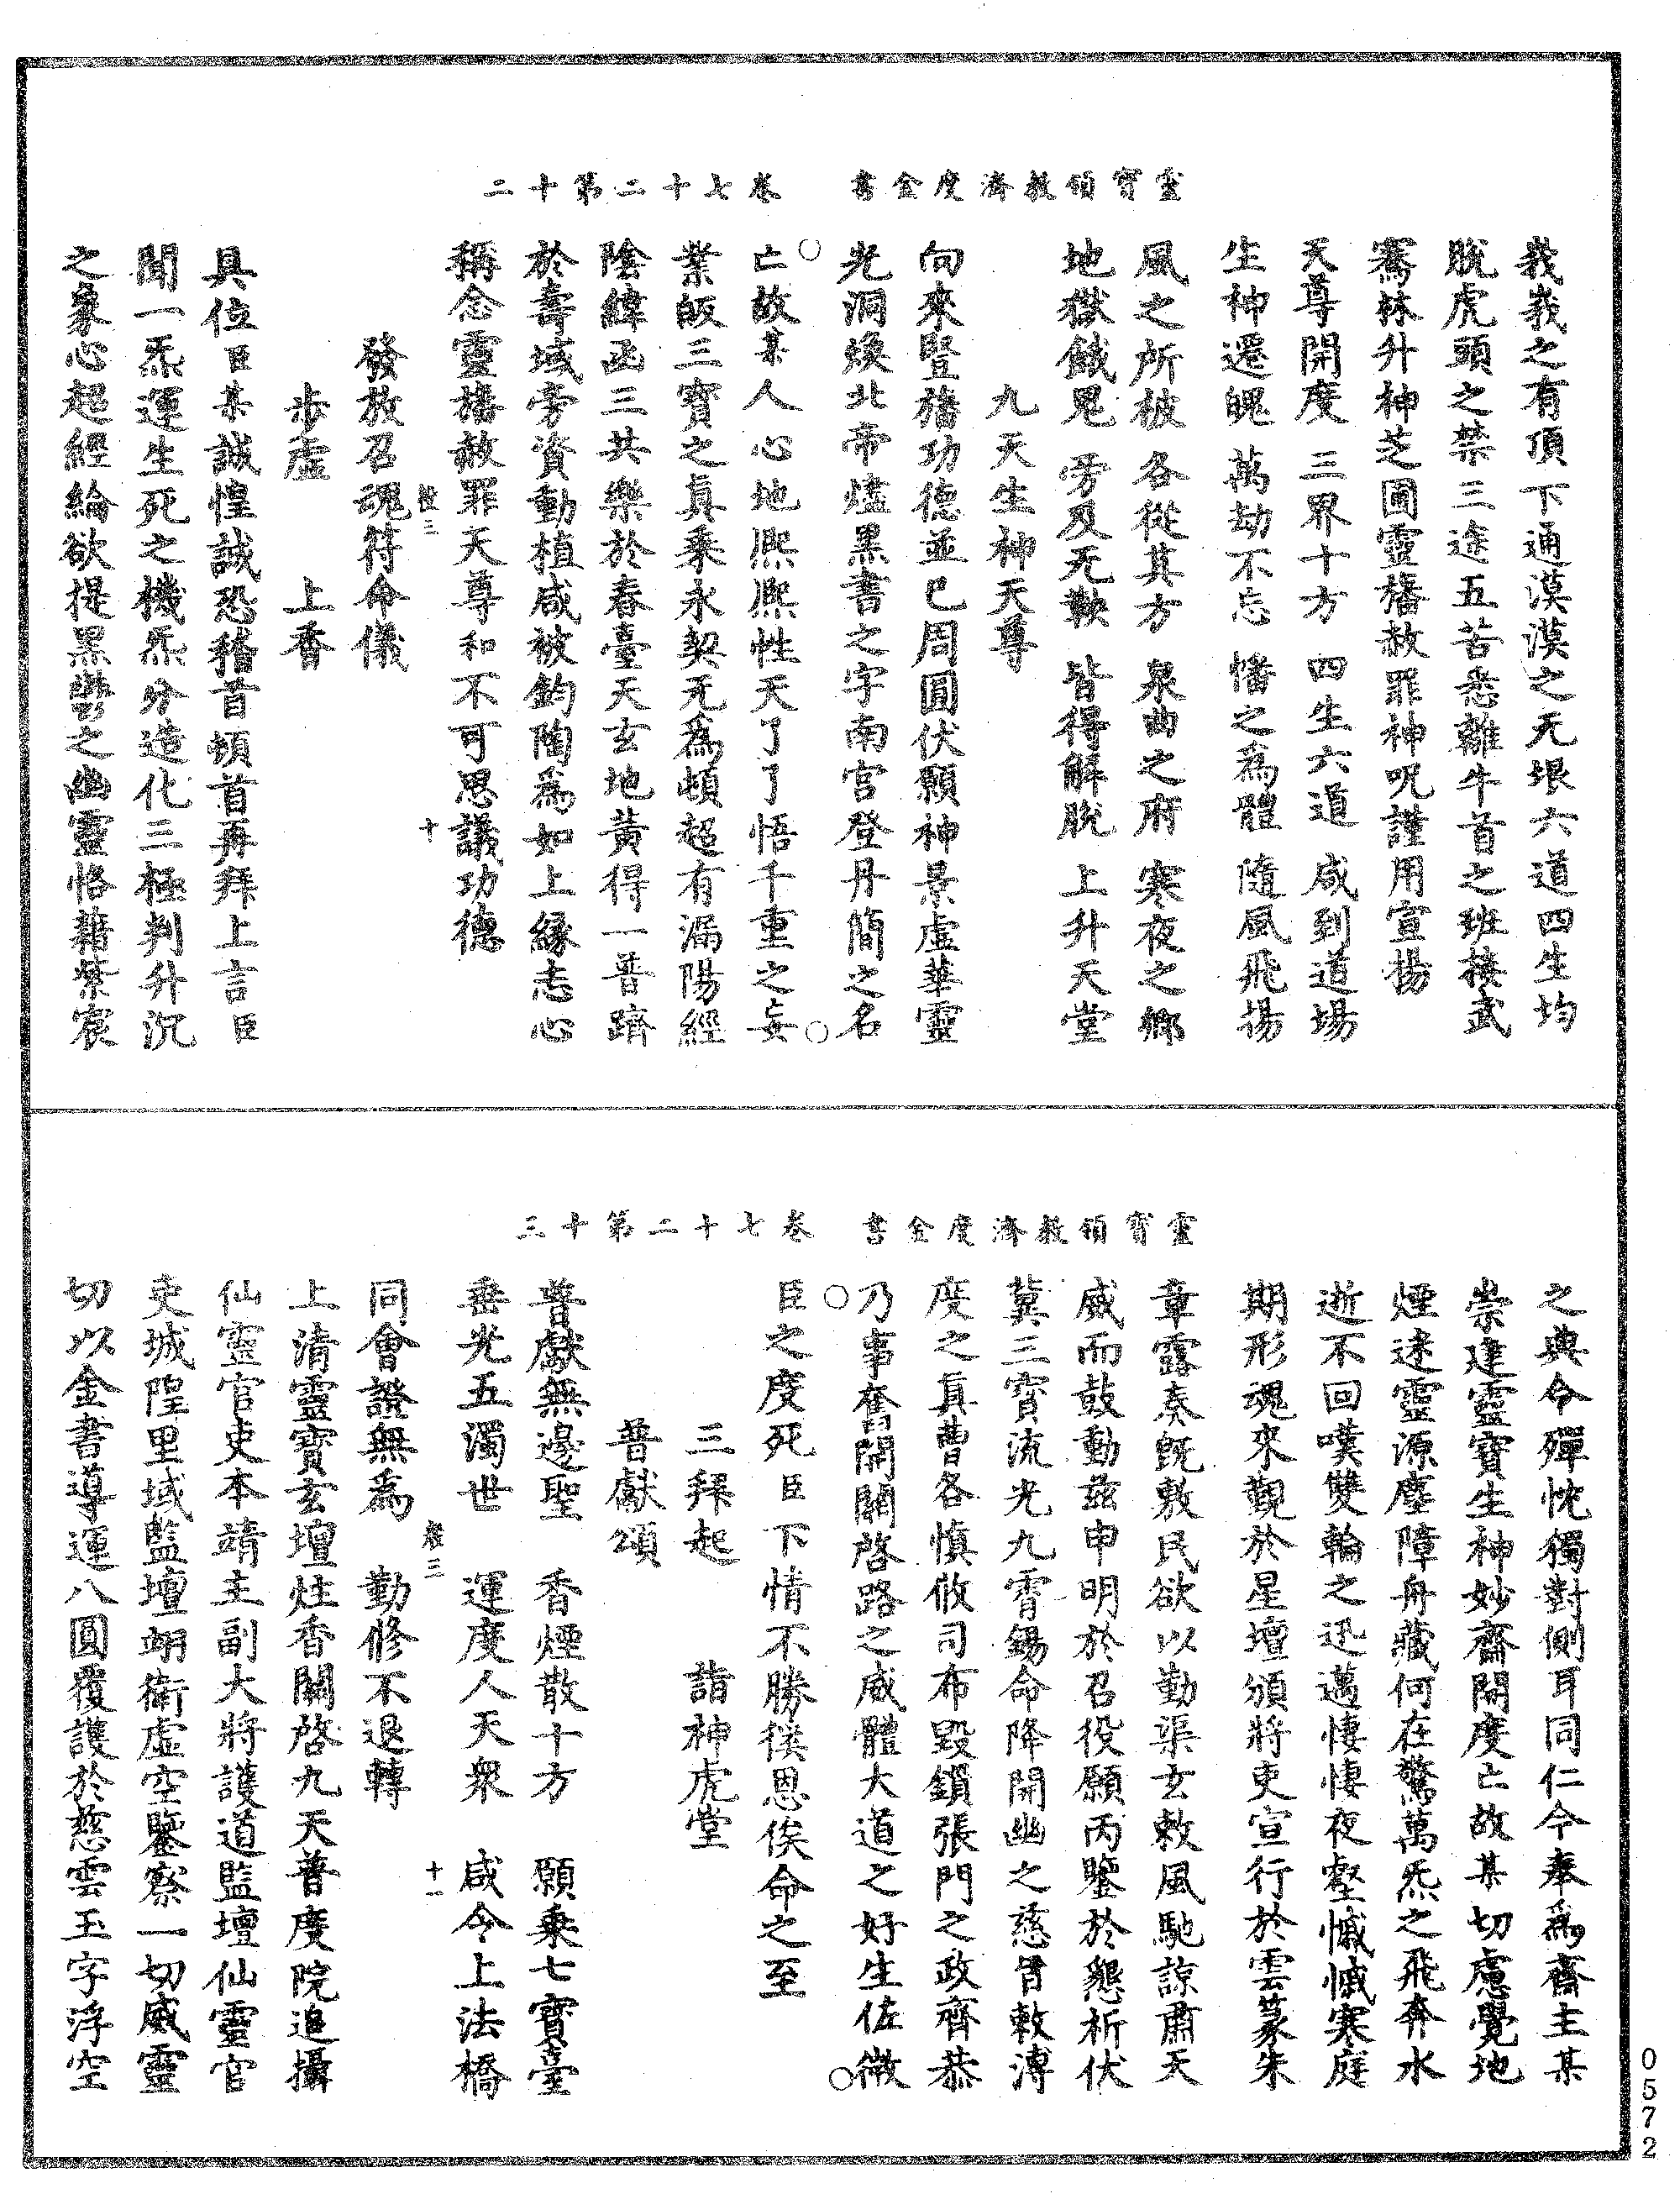 靈寶領教濟度金書 卷七十二第十二
莪莪之有頂下通漠漠之无垠六道四生均
脫虎頭之禁三途五苦悉離牛首之班接武
騫林升神芝圃靈旛赦罪神呪謹用宣揚
天尊開度 三界十方 四生六道 咸到道場
生神還魄 萬劫不忘 旛之爲體 隨風飛揚
風之所被 各從其方 泉曲之府 寒夜之鄉
地獄餓鬼 旁及无鞅 皆得解脫 上升天堂
九天生神天尊
向來豎旛功德並已周圓伏願神景虛華靈
光洞煥北帝燼黑書之字南宮登丹簡之名
○亡故某人心地熙熙性天了了悟千重之妄○
業皈三寶之眞乘永契无爲頓超有漏陽經
陰緯函三共樂於春臺天玄地黃得一普躋
於壽域旁資動植咸被鈞陶爲如上緣志心
稱念靈旛赦罪天尊和不可思議功德
發放召魂符命儀
步虛 上香
具位臣某誠惶誠恐稽首頓首再拜上言臣
聞一炁運生死之機炁分造化三極判升沉
之象心起經綸欲提黑礐之幽靈恪藉紫宸
靈寶領教濟度金書 卷七十二第十三
之典命殫忱獨對側耳同仁今奉爲齋主某
崇建靈寶生神妙齋開度亡故某切慮覺地
煙迷靈源塵障舟藏何在驚萬炁之飛奔水
逝不回嘆雙輪之迅邁悽悽夜壑慽慽寒庭
期形魂來覲於星壇頒將吏宣行於雲篆朱
章露奏旣敷民欲以勤渠玄敕風馳諒肅天
威而鼓動茲申明於召役願丙鑒於懇祈伏
冀三寳流光九霄錫命降開幽之慈旨敕溥
度之眞曹各愼攸司布毀鎖張門之政齊恭
○乃事奮開關啓路之威體大道之好生佐微○
臣之度死臣下情不勝徯恩俟命之至
三拜起 詣神虎堂
普獻頌
普獻無邊聖 香煙散十方 願乗七寶臺
垂光五濁世 運度人天衆 咸令上法橋
同會證無爲 勤修不退轉
上清靈寶玄壇炷香關啓九天普度院追攝
仙靈官吏本靖主副大將護道監壇仙靈官
吏城隍里域監壇翊衛虛空鑒察一切威靈
切以金書導運八圓覆護於慈雲玉字浮空
0572